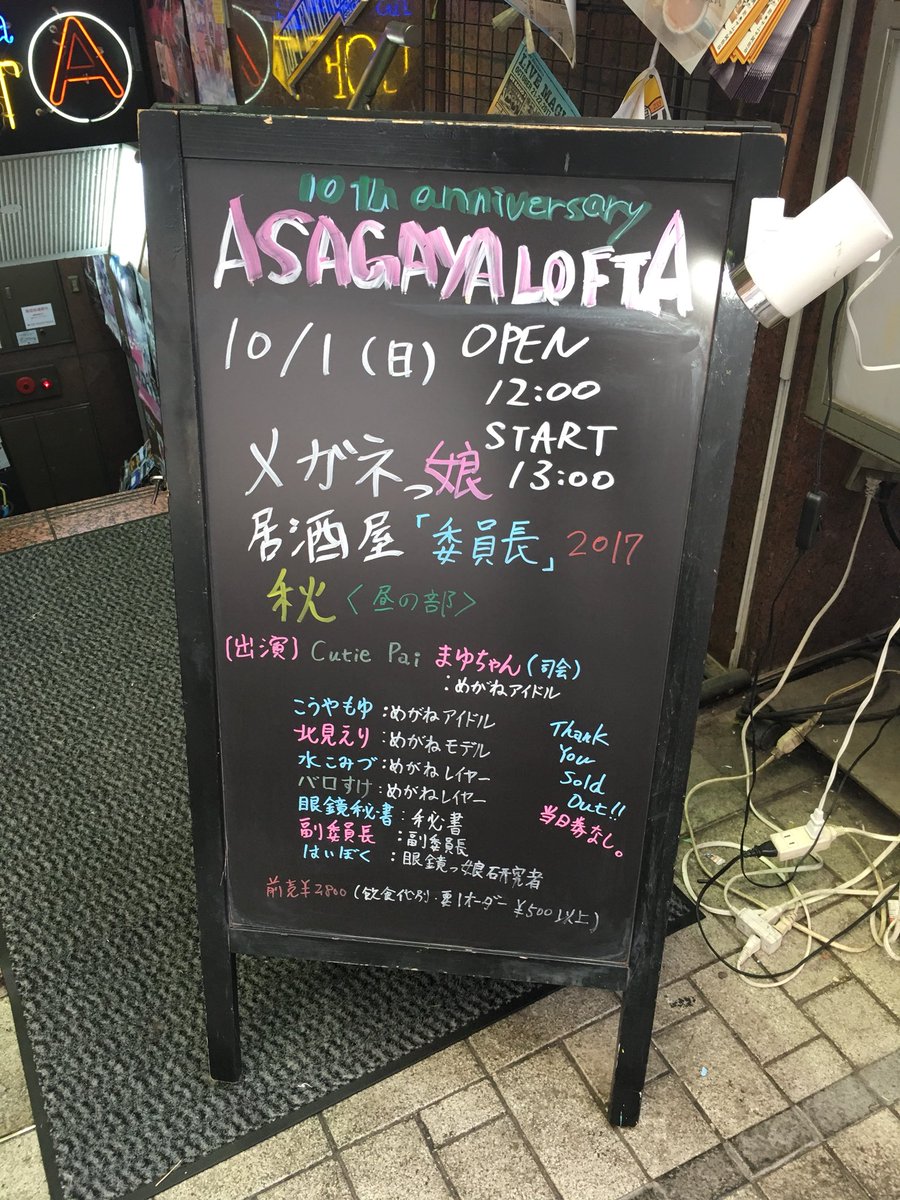 A
10th anniversary
ASAGAYA LOFT A
10/1(日) OPEN
12:00
START
13:00
メガネっ娘
居酒屋「委員長」2017
秋〈昼の部〉
[出演] Cutie Pai まゆちゃん(司会)
:めがねアイドル
こうやもゆ:めがねアイドル
北見えり:めがねモデル
水こみづ:めがねレイヤー
バロすけ:めがねレイヤー
眼鏡秘書:秘書
副委員長:副委員長
はいぼく:眼鏡っ娘研究者
Thank
You
Sold
Out!!
当日券なし。
前売¥2800(飲食代別・要1オーダー¥500以上)